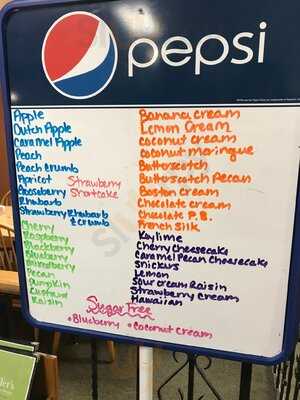 pepsi
Apple
Dutch Apple
Caramel Apple
Peach
Peach Crumb
Apricot
Gooseberry
Rhubarb
Strawberry Rhubarb
& Crumb
Strawberry
Shortcake
Cherry
Raspberry
Blackberry
Blueberry
Pecan
Pumpkin
Custard
Raisin
Banana cream
Lemon Cream
coconut cream
coconut meringue
Butterscotch
Butterscotch Pecan
Boston cream
Chocolate cream
Chocolate P.B.
French Silk
Keylime
Cherry Cheesecake
Caramel Pecan Cheesecake
Snickers
Lemon
Sour cream Raisin
Strawberry Cream
Hawaiian
Sugar Free
• Blueberry • Coconut cream